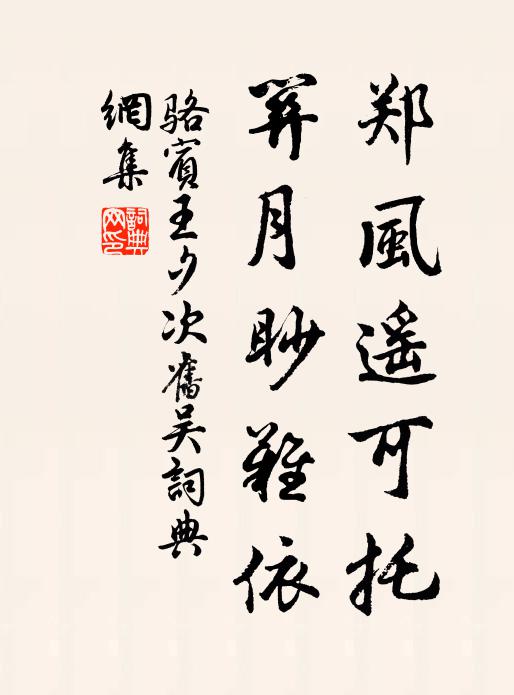 郑風遥可托
关月眇難依
駱賓王夕次舊吴詞典
網集
詞典
网印